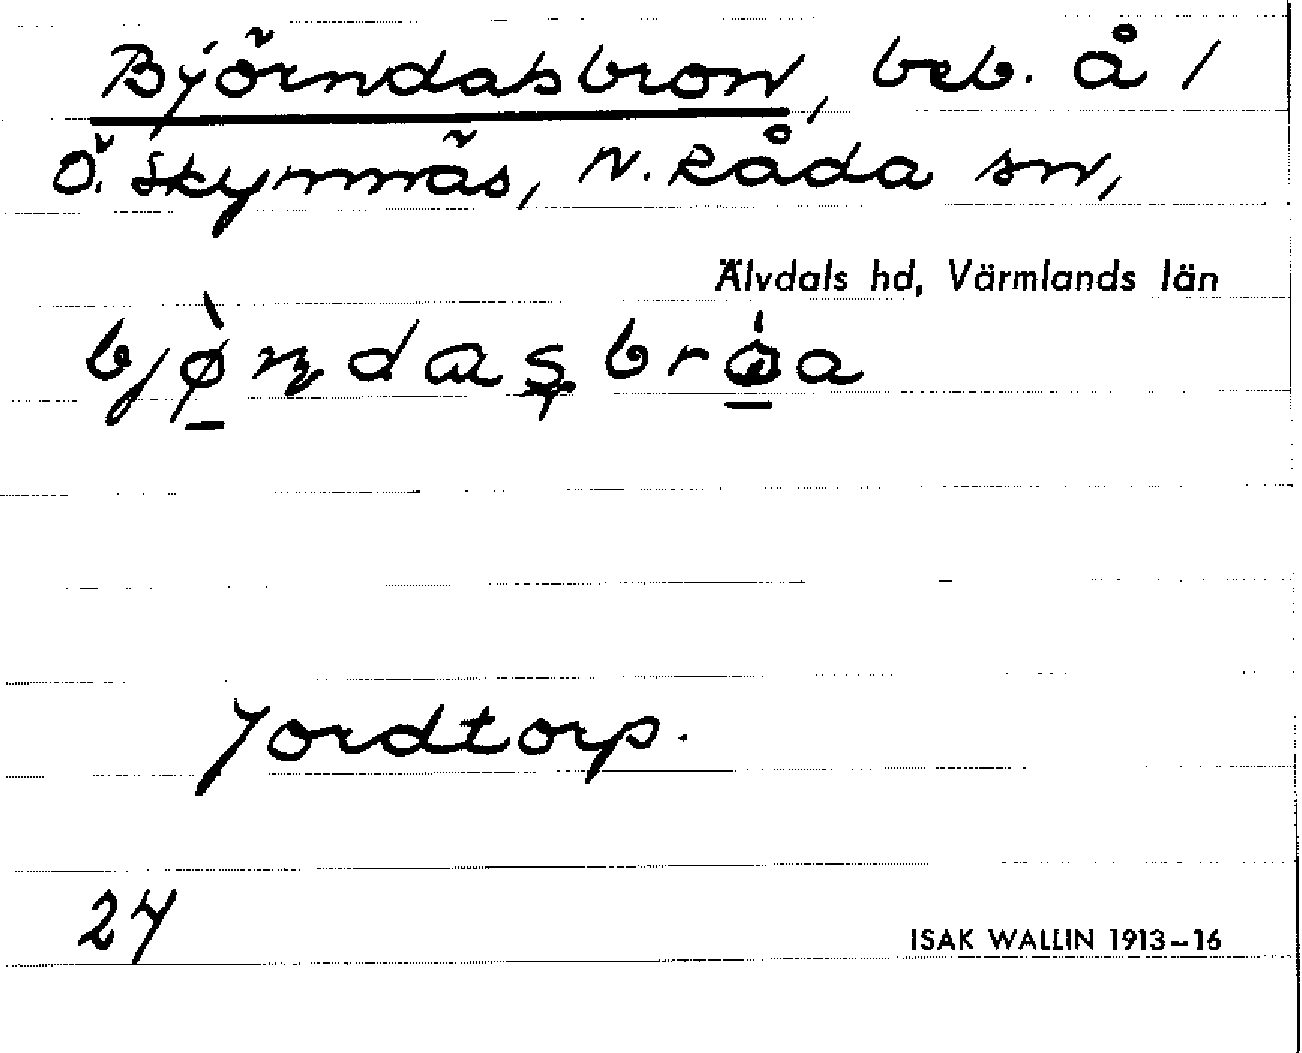 Björndalsbron, beb. å 1
Ö. Skymnäs, N. Råda sn,
Älvdals hd, Värmlands län
bjø̀ṇdaṣbróa
Jordtorp.
24
ISAK WALLIN 1913–16